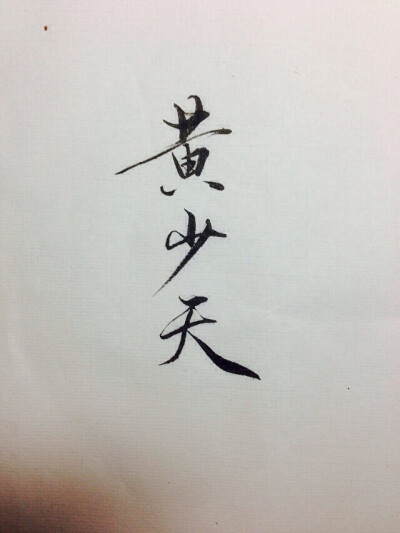 黄少天